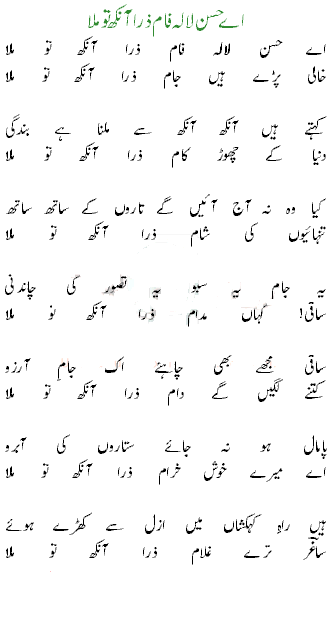 اے حسن لالہ فام ذرا آنکھ تو ملا
اے حسن لالہ فام ذرا آنکھ تو ملا
خالی پڑے ہیں جام ذرا آنکھ تو ملا
کہتے ہیں آنکھ آنکھ سے ملنا ہے بندگی
دنیا کے چھوڑ کام ذرا آنکھ تو ملا
کیا وہ نہ آج آئیں گے تاروں کے ساتھ ساتھ
تنہائیوں کی شام ذرا آنکھ تو ملا
یہ جام یہ سبو یہ تصور کی چاندنی
ساقی! کہاں مدام ذرا آنکھ تو ملا
ساقی مجھے بھی چاہئے اک جام آرزو
کتنے لگیں گے دام ذرا آنکھ تو ملا
پامال ہو نہ جائے ستاروں کی آبرو
اے میرے خوش خرام ذرا آنکھ تو ملا
ہیں راہ کہکشاں میں ازل سے کھڑے ہوئے
ساغر ترے غلام ذرا آنکھ تو ملا